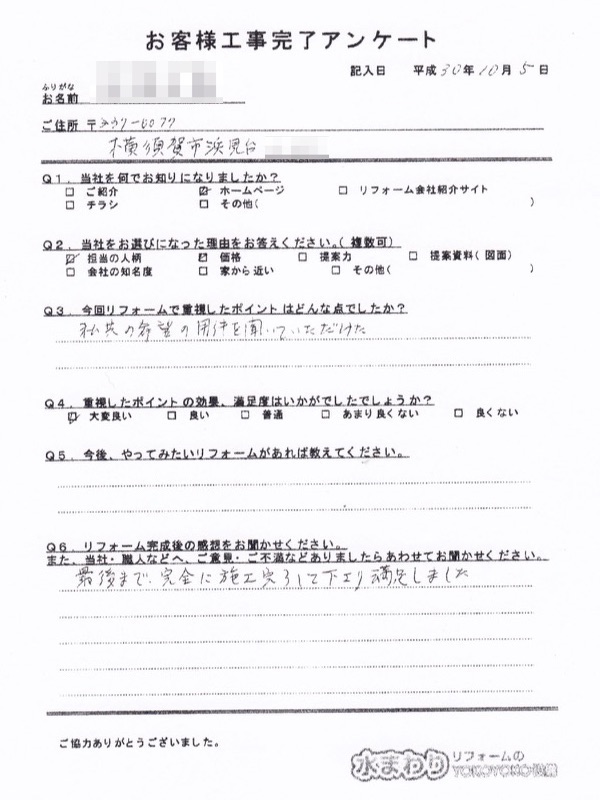 お客様工事完了アンケート
記入日 平成30年10月5日
ふりがな
お名前
ご住所 〒237-0077
横須賀市浜見台
Q1. 当社を何でお知りになりましたか?
□ ご紹介 ☑ ホームページ □ リフォーム会社紹介サイト
□ チラシ □ その他( )
Q2. 当社をお選びになった理由をお答えください。(複数可)
☑ 担当の人柄 ☑ 価格 □ 提案力 □ 提案資料(図面)
□ 会社の知名度 □ 家から近い □ その他( )
Q3. 今回リフォームで重視したポイントはどんな点でしたか?
私共の希望の用件を聞いていただけた
Q4. 重視したポイントの効果、満足度はいかがでしたでしょうか?
☑ 大変良い □ 良い □ 普通 □ あまり良くない □ 良くない
Q5. 今後、やってみたいリフォームがあれば教えてください。
Q6. リフォーム完成後の感想をお聞かせください。
また、当社・職人などへ、ご意見・ご不満などありましたらあわせてお聞かせください。
最後まで、完全に施工完了して下さり満足しました
ご協力ありがとうございました。
水まわり リフォームの
YOKOYOKO設備